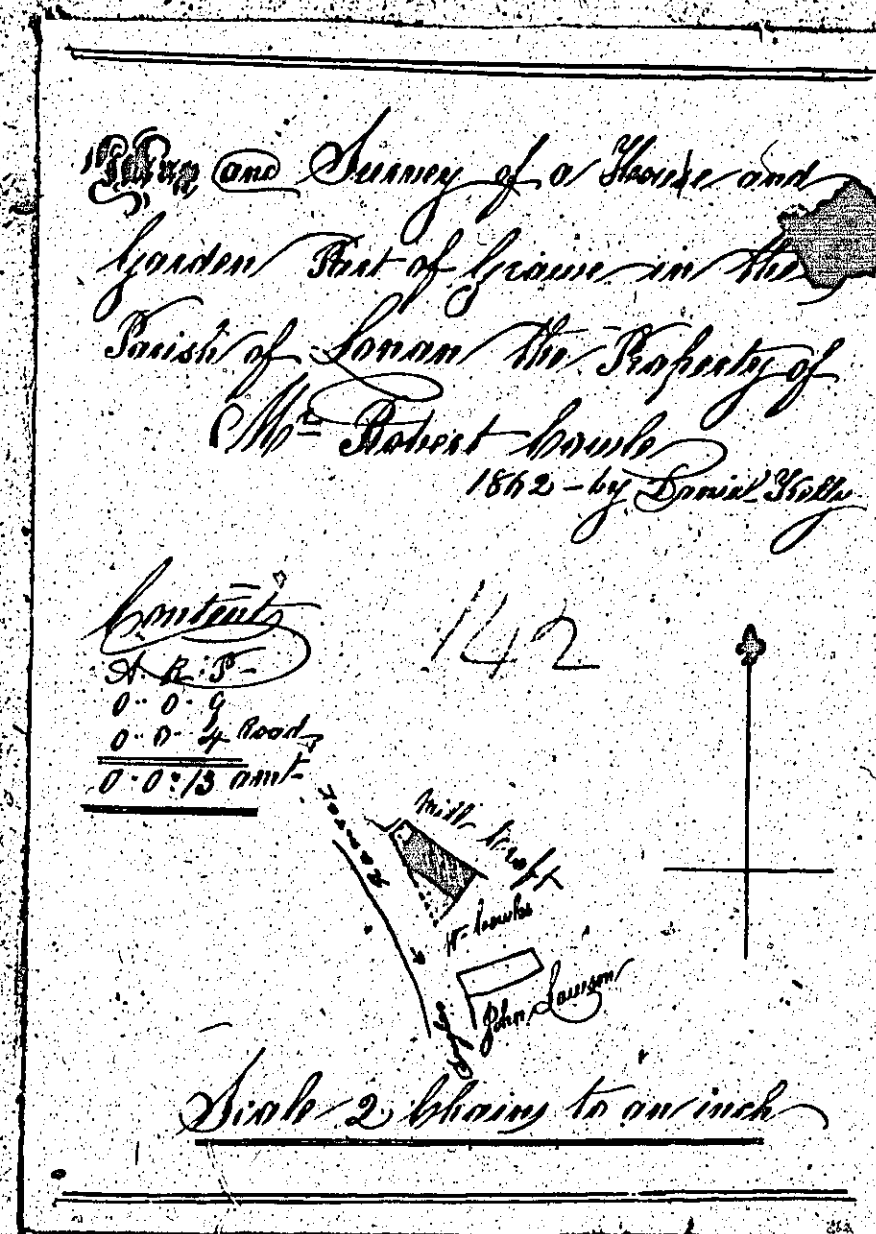 Plan and Survey of a House and
Garden Part of Grawe in the
Parish of Lonan the Property of
Mr Robert Cowle
1862 - by Daniel Kelly
Content
A. R. P-
0.. 0. 9
0.. 0. 4 Road
0. 0: 13 amt
142
Ramsey
Mill Croft
John Lawson
Scale 2 Chains to an inch